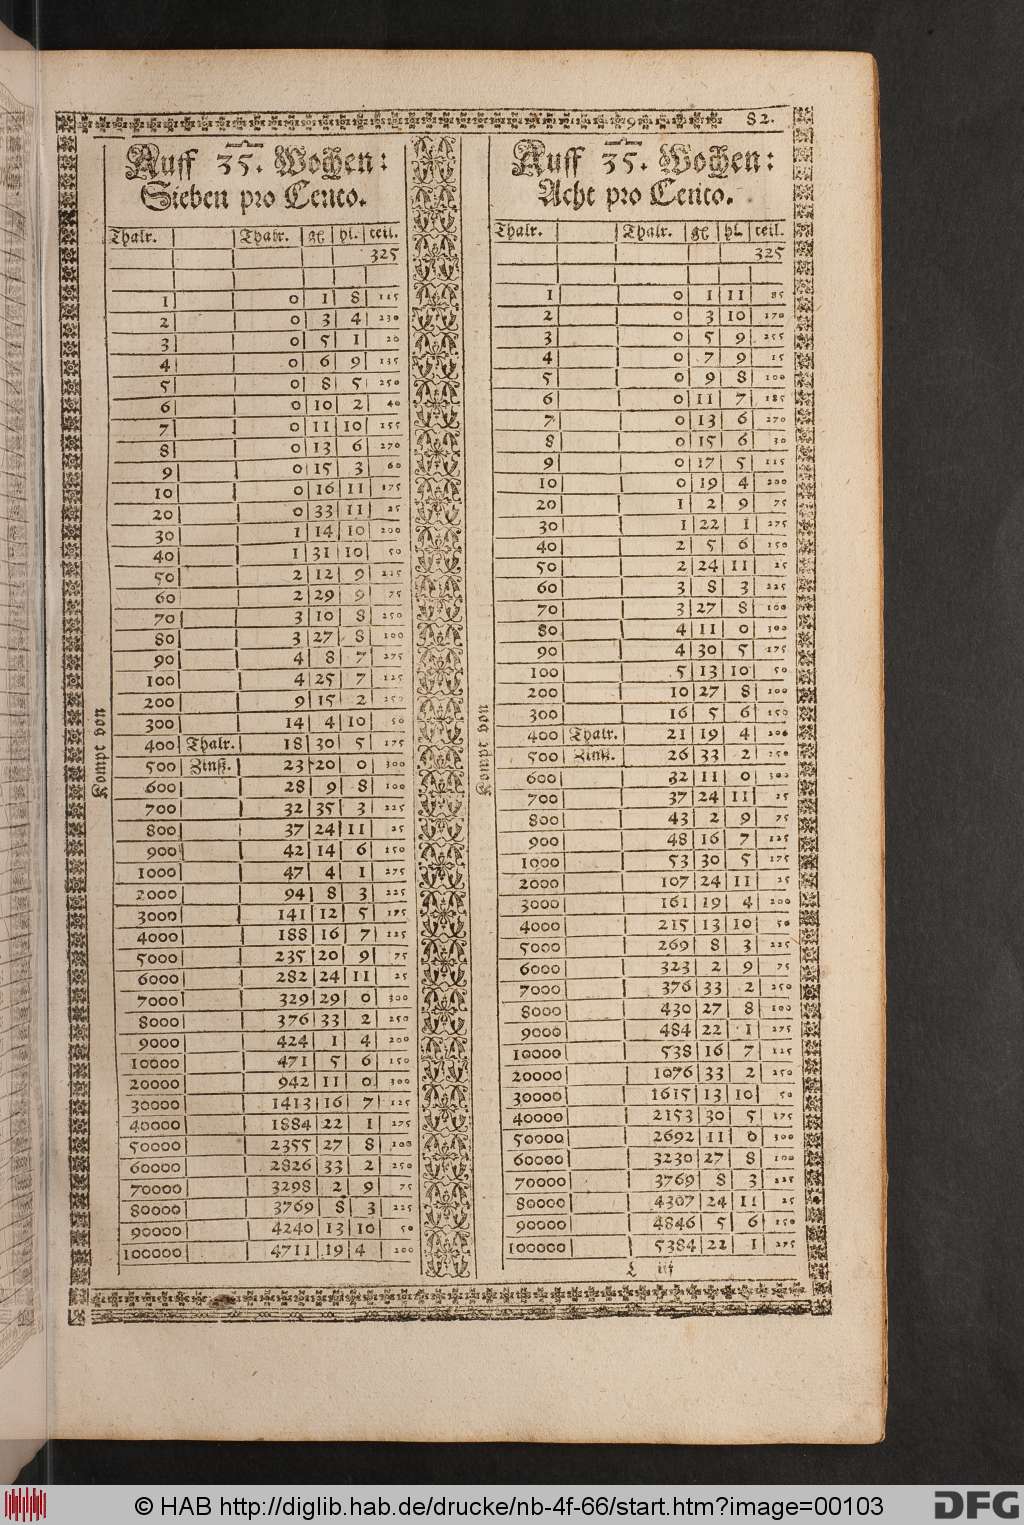 82.
Auff 35. Wochen:
Sieben pro Cento.
Thalr. Thalr. gl hl. teil.
325
1 0 1 8 115
2 0 3 4 230
3 0 5 1 20
4 0 6 9 135
5 0 8 5 250
6 0 10 2 40
7 0 11 10 155
8 0 13 6 270
9 0 15 3 60
10 0 16 11 175
20 0 33 11 25
30 1 14 10 200
40 1 31 10 50
50 2 12 9 225
60 2 29 9 75
70 3 10 8 250
80 3 27 8 100
90 4 8 7 275
100 4 25 7 125
200 9 15 2 250
300 14 4 10 50
400 Thalr. 18 30 5 175
500 Zinß. 23 20 0 300
600 28 9 8 100
700 32 35 3 225
800 37 24 11 25
900 42 14 6 150
1000 47 4 1 275
2000 94 8 3 225
3000 141 12 5 175
4000 188 16 7 125
5000 235 20 9 75
6000 282 24 11 25
7000 329 29 0 300
8000 376 33 2 250
9000 424 1 4 200
10000 471 5 6 150
20000 942 11 0 300
30000 1413 16 7 125
40000 1884 22 1 275
50000 2355 27 8 100
60000 2826 33 2 250
70000 3298 2 9 75
80000 3769 8 3 225
90000 4240 13 10 50
100000 4711 19 4 200
Kompt von
Auff 35. Wochen:
Acht pro Cento.
Thalr. Thalr. gl hl. teil.
325
1 0 1 11 85
2 0 3 10 170
3 0 5 9 255
4 0 7 9 15
5 0 9 8 100
6 0 11 7 185
7 0 13 6 270
8 0 15 6 30
9 0 17 5 115
10 0 19 4 200
20 1 2 9 75
30 1 22 1 275
40 2 5 6 150
50 2 24 11 25
60 3 8 3 225
70 3 27 8 100
80 4 11 0 300
90 4 30 5 175
100 5 13 10 50
200 10 27 8 100
300 16 5 6 150
400 Thalr. 21 19 4 200
500 Zinß. 26 33 2 250
600 32 11 0 300
700 37 24 11 25
800 43 2 9 75
900 48 16 7 125
1000 53 30 5 175
2000 107 24 11 25
3000 161 19 4 200
4000 215 13 10 50
5000 269 8 3 225
6000 323 2 9 75
7000 376 33 2 250
8000 430 27 8 100
9000 484 22 1 275
10000 538 16 7 125
20000 1076 33 2 250
30000 1615 13 10 50
40000 2153 30 5 175
50000 2692 11 0 300
60000 3230 27 8 100
70000 3769 8 3 225
80000 4307 24 11 25
90000 4846 5 6 150
100000 5384 22 1 275
Kompt von
© HAB http://diglib.hab.de/drucke/nb-4f-66/start.htm?image=00103
DFG